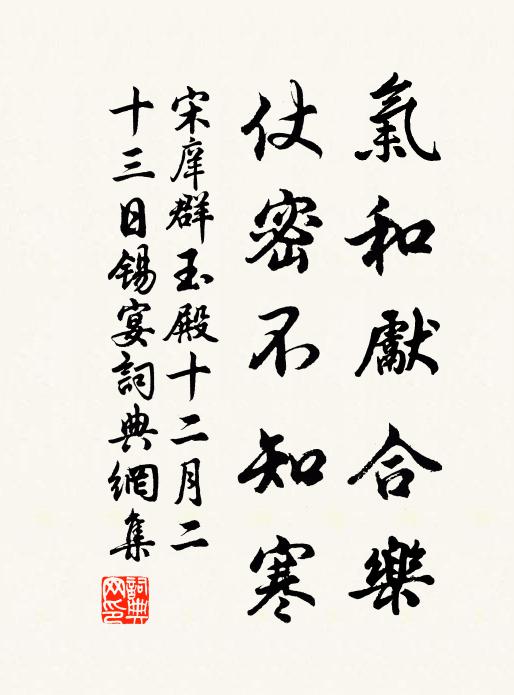 氣和獻合樂
仗密不知寒
宋庠群玉殿十二月二
十三日錫宴詞典網集
詞典
网印